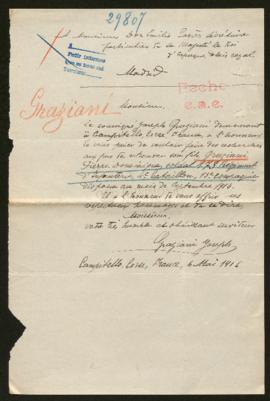 29807
A Monsieur Don Emilio Secrétaire
particulier de Sa Majesté le Roi
d'Espagne, Palais royal
Madrid
Graziani
Monsieur,
Le soussigné Joseph Graziani demeurant
à Campitello, Corse, France, a l'honneur
de vous prier de vouloir faire des recherches
aux fins de retrouver son fils Graziani
Pierre, soldat au Régiment
d'Infanterie, bataillon, compagnie
disparu au mois de Septembre 1914.
Il a l'honneur de vous offrir ses
respectueux hommages et de se dire,
Monsieur,
votre très humble et obéissant serviteur
Graziani Joseph,
Campitello, Corse, France, 6 Mai 1915